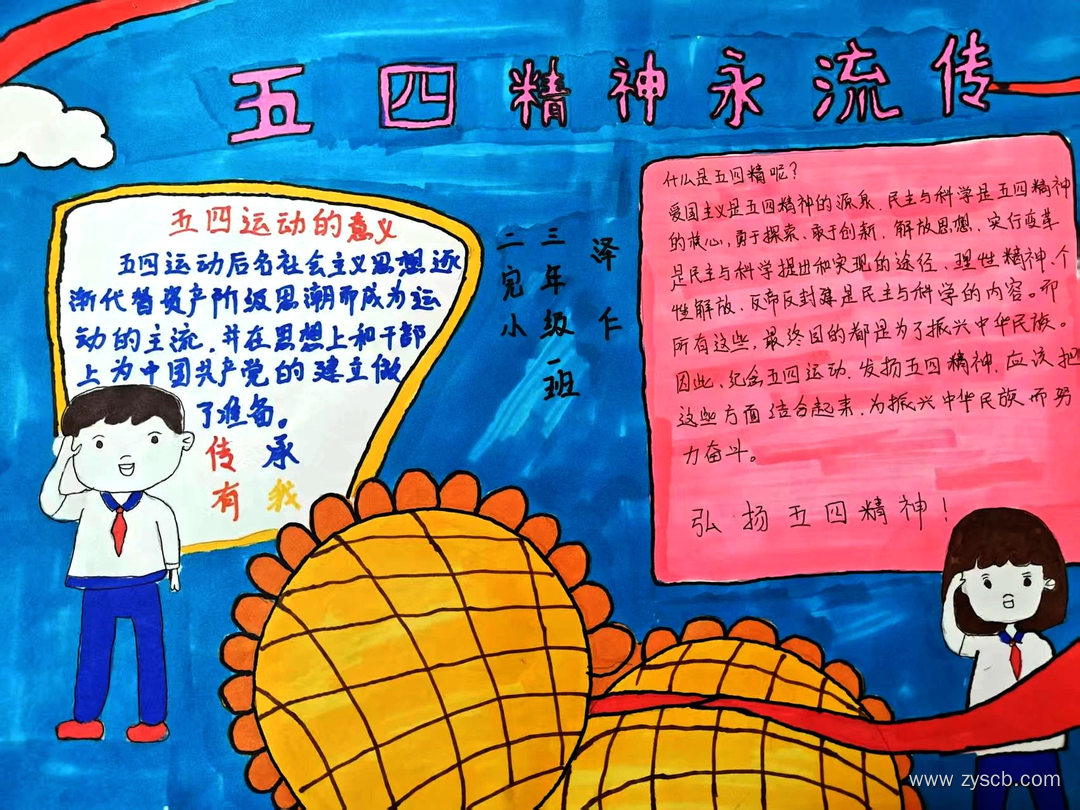 五四精神永流传
五四运动的意义
五四运动后名社会主义思想逐
渐代替资产阶级思潮而成为运
动的主流，并在思想上和干部
上为中国共产党的建立做
了准备。
传承
有我
二完小
三年级一班
泽仁
什么是五四精呢？
爱国主义是五四精神的源泉、民主与科学是五四精神
的核心，勇于探索、敢于创新、解放思想、实行变革
是民主与科学提出和实现的途径、理性精神、个
性解放、反帝反封建是民主与科学的内容。而
所有这些，最终目的都是为了振兴中华民族。
因此、纪念五四运动、发扬五四精神、应该把
这些方面结合起来，为振兴中华民族而努
力奋斗。
弘扬五四精神！
www.zyscb.com